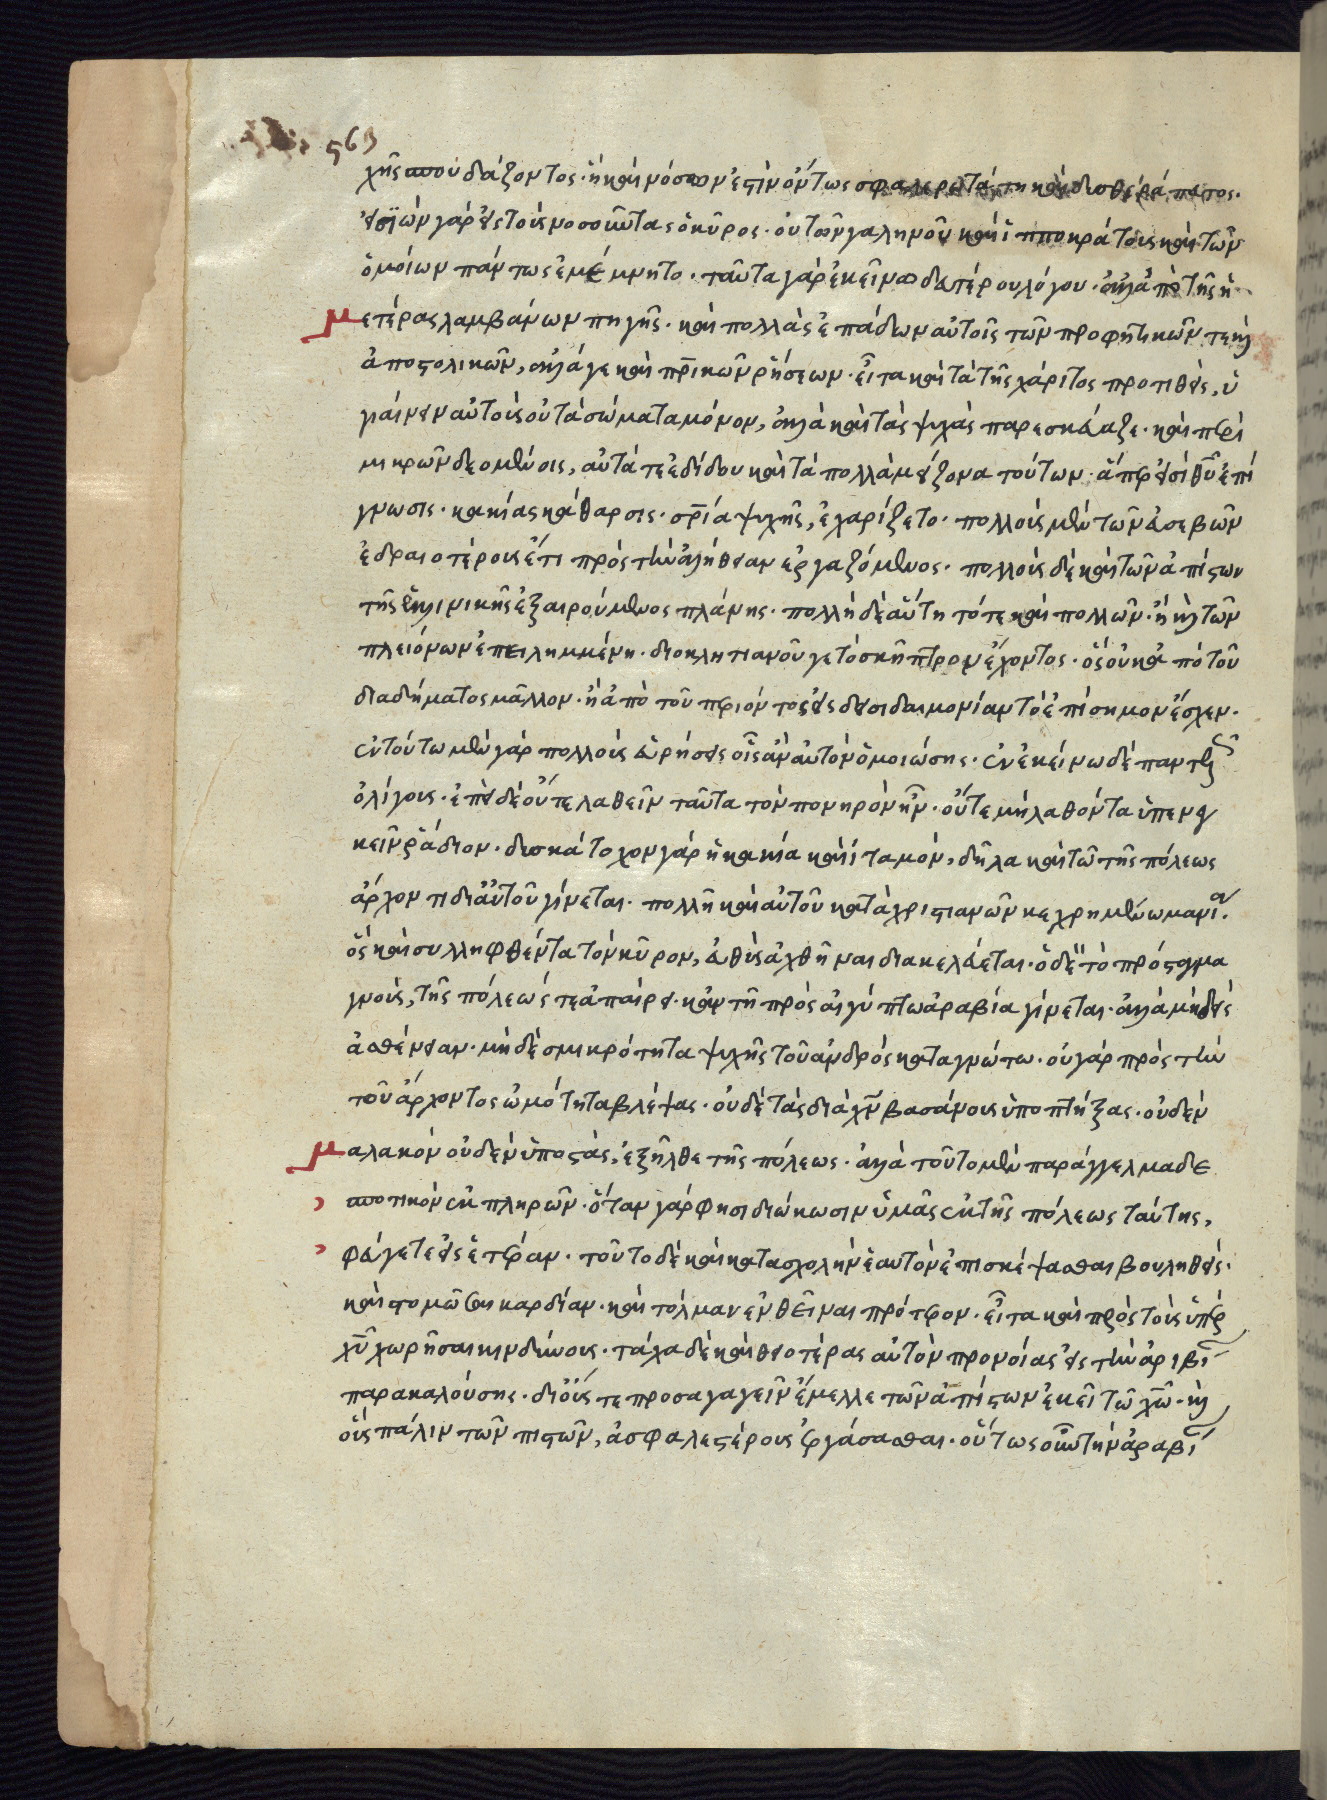 563
χῆς σπουδάζοντος· ἣ καὶ νόσων ἐστὶν ὄντως σφαλερωτάτη καὶ δυσθεράπευτος·
εἰσϊὼν γὰρ εἰς τοὺς νοσοῦντας ὁ κῦρος· οὐ τῶν γαληνοῦ καὶ ἱπποκράτους καὶ τῶν
ὁμοίων πάντως ἐμέμνητο· ταῦτα γὰρ ἐκείνω δευτέρου λόγου· ἀλλ' ἀπὸ τῆς ἡ
μετέρας λαμβάνων πηγῆς· καὶ πολλὰς ἐπάδων αὐτοῖς τῶν προφητικῶν τε καὶ
ἀποστολικῶν, ἀλλά γε καὶ πρικῶν ῥήσεων· εἶτα καὶ τὰ τῆς χάριτος προτιθεὶς, ὑ
γιαίνειν αὐτοῖς οὐ τὰ σώματα μόνον, ἀλλὰ καὶ τὰς ψυχὰς παρεσκεύαζε· καὶ περὶ
μικρῶν δεομένοις, αὐτά τε ἐδίδου καὶ τὰ πολλὰ μείζονα τούτων· ἅπερ εἰσὶ θυ ἐπί
γνωσις· κακίας κάθαρσις· σρία ψυχῆς, ἐχαρίζετο· πολλοὺς μὲν τῶν εὐσεβῶν
ἑδραιοτέρους ἔτι πρὸς τὴν ἀλήθειαν ἐργαζόμενος· πολλοὺς δὲ καὶ τῶν ἀπίστων
τῆς ἑλληνικῆς ἐξαιρούμενος πλάνης· πολλὴ δὲ αὕτη τότε καὶ πολλῶν· ἢ καὶ τῶν
πλειόνων ἐπειλημμένη· διοκλητιανοῦ γε τὸ σκῆπτρον ἔχοντος· ὃς οὐκ ἀπὸ τοῦ
διαδήματος μᾶλλον· ἢ ἀπὸ τοῦ περιόντος εἰς δεισιδαιμονίαν τὸ ἐπίσημον ἔσχεν·
ἐν τούτω μὲν γὰρ πολλοὺς εὑρήσεις οἷς ἂν αὐτὸν ὁμοιώσης· ἐν ἐκείνω δὲ παντελῶς
ὀλίγους· ἐπεὶ δὲ οὔτε λαθεῖν ταῦτα τὸν πονηρὸν ἦν· οὔτε μὴ λαθόντα ὑπενεγ
κεῖν ῥάδιον· δυσκάτοχον γὰρ ἡ κακία καὶ ἰταμόν, δῆλα καὶ τῶ τῆς πόλεως
ἄρχοντι δι' αὐτοῦ γίνεται· πολλῆ καὶ αὐτοῦ κατὰ χριστιανῶν κεχρημένω μανία·
ὃς καὶ συλληφθέντα τὸν κῦρον, εὐθὺς ἀχθῆναι διακελεύεται· ὁ δὲ τὸ πρόσταγμα
γνοὺς, τῆς πόλεώς τε ἀπαίρει· κἂν τῆ πρὸς αἰγύπτω ἀραβία γίνεται· ἀλλὰ μηδεὶς
ἀσθένειαν· μηδὲ σμικρότητα ψυχῆς τοῦ ἀνδρὸς καταγνώτω· οὐ γὰρ πρὸς τὴν
τοῦ ἄρχοντος ὠμότητα βλέψας· οὐδὲ τὰς διὰ χν βασάνους ὑποπτήξας· οὐδὲν
μαλακὸν οὐδὲν ὑποστὰς, ἐξῆλθε τῆς πόλεως· ἀλλὰ τοῦτο μὲν παράγγελμα δε
σποτικὸν ἐκπληρῶν· ὅταν γάρ φησι διώκωσιν ὑμᾶς ἐκ τῆς πόλεως ταύτης,
φεύγετε εἰς ἑτέραν· τοῦτο δὲ καὶ κατασχολὴν ἑαυτὸν ἐπισκέψασθαι βουληθεὶς·
καὶ στομῶσαι καρδίαν· καὶ τόλμαν ἐνθεῖναι πρότερον· εἶτα καὶ πρὸς τοὺς ὑπὲρ
χυ χωρῆσαι κινδύνους· τάχα δὲ καὶ θειοτέρας αὐτὸν προνοίας εἰς τὴν ἀραβί
παρακαλούσης· δι' οὕς τε προσαγαγεῖν ἔμελλε τῶν ἀπίστων ἐκεῖ τῶ χω· καὶ
οὓς πάλιν τῶν πιστῶν, ἀσφαλεστέρους ἐργάσασθαι· οὕτως οὖν τὴν ἀραβί